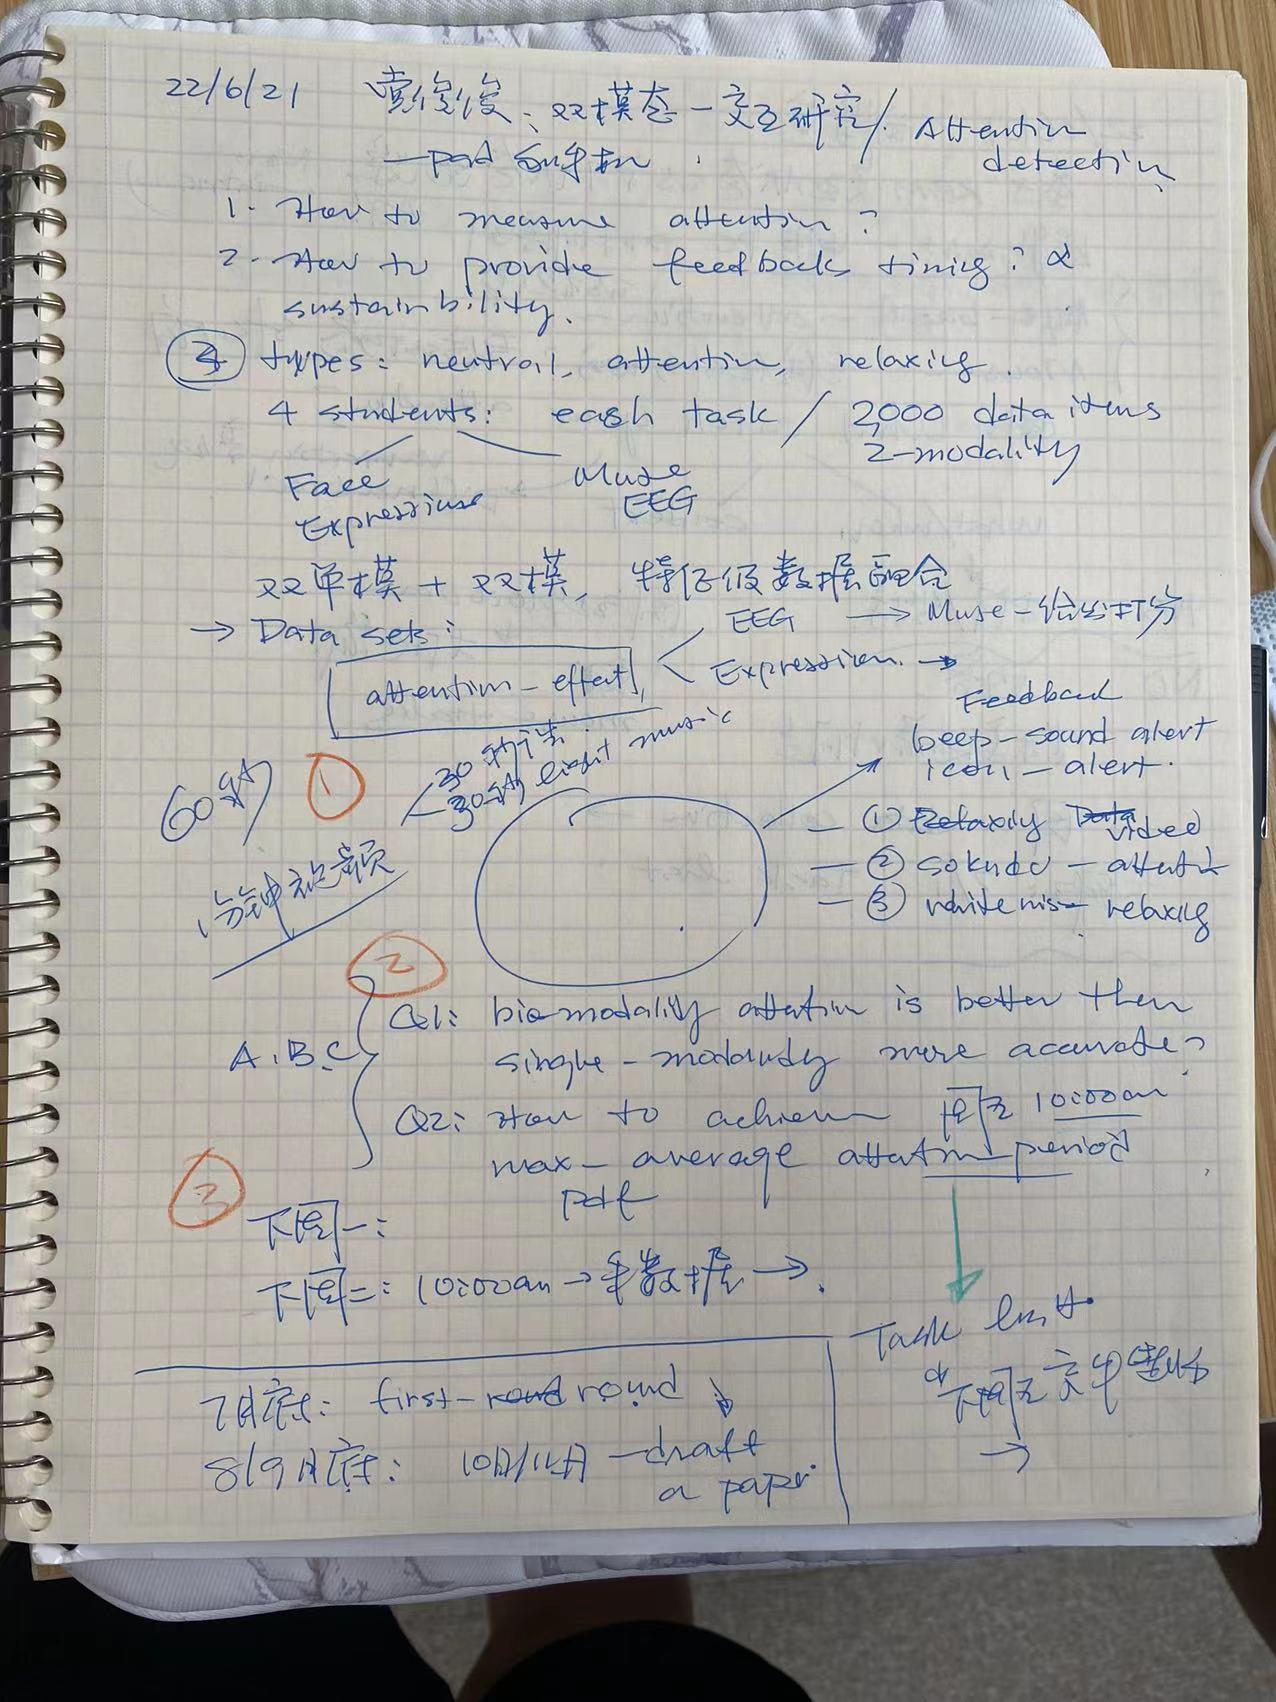 22/6/21 俊俊: 双模态-交互研究/ Attention detection
-pad
1. How to measure attention?
2. How to provide feedback timing? &
sustainbility.
types: neutral, attention, relaxing.
4 students: each task / 2,000 data items
2-modality
Face Expressions
Muse EEG
双单模 + 双模, 特征级数据融合
→ Data sets:
attention-effect
EEG → Muse-给出打分
Expression. →
Feedback
beep-sound alert
icon-alert.
60
①
30
30 light music
1分钟视频
- ① Relaxing Data video
- ② sokudo - attenti
- ③ relaxing
②
A.B.C
Q1: bio-modality attention is better then
single-modality more accurate?
Q2: How to achieve 周五 10:00am
max-average attention period
pdf
③
下周一:
下周二: 10:00am → 数据 →.
Task list.
下周五
→
7月底: first-round round
8/9月底: 10月/11月 - draft
a paper.